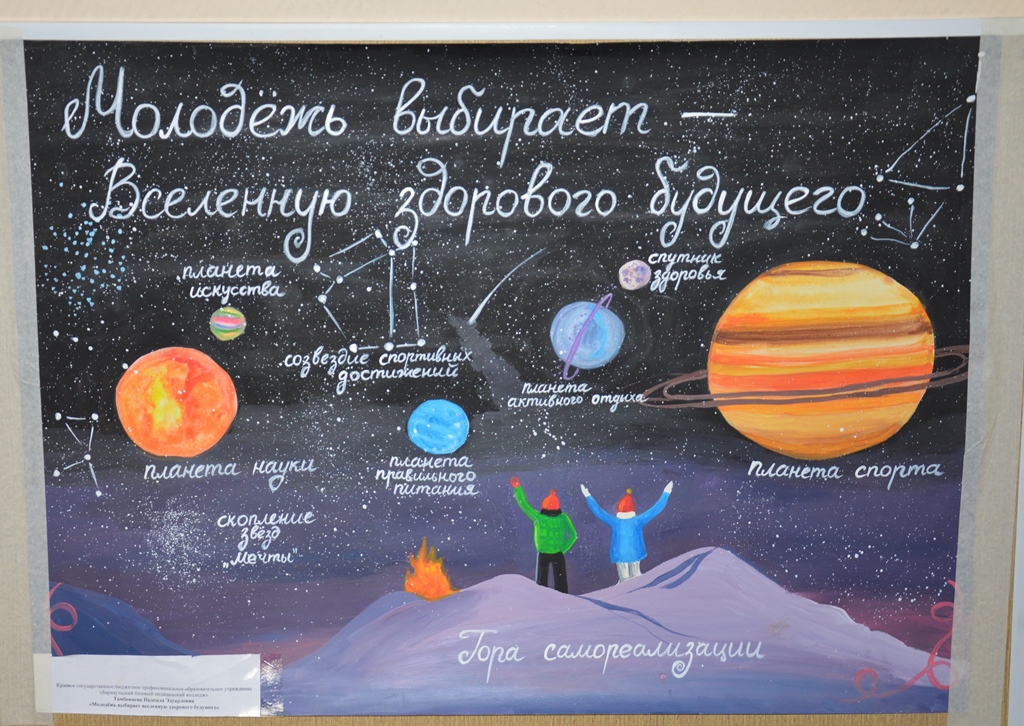 Молодёжь выбирает —
Вселенную здорового будущего
спутник
здоровья
планета
искусства
созвездие спортивных
достижений
планета
активного отдыха
планета науки
планета
правильного
питания
планета спорта
скопление
звёзд
„мечты"
Гора самореализации
Краевое государственное бюджетное профессиональное образовательное учреждение
«Барнаульский базовый медицинский колледж»
Надежда Эдуардовна
«Молодёжь выбирает вселенную здорового будущего»